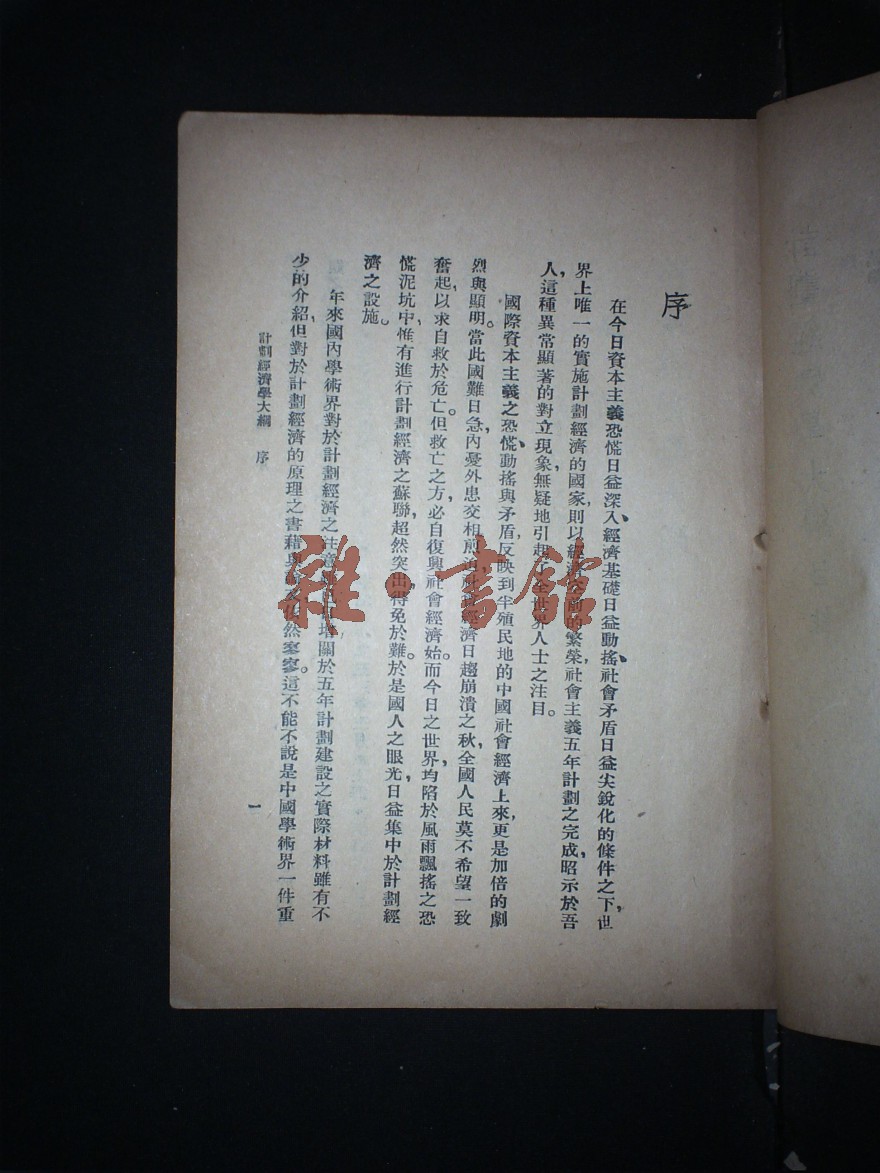 序
在今日資本主義恐慌日益深入、經濟基礎日益動搖、社會矛盾日益尖銳化的條件之下，世
界上唯一的實施計劃經濟的國家，則以經濟空前的繁榮，社會主義五年計劃之完成，昭示於吾
人，這種異常顯著的對立現象，無疑地引起了全世界人士之注目。
國際資本主義之恐慌、動搖與矛盾，反映到半殖民地的中國社會經濟上來，更是加倍的劇
烈與顯明。當此國難日急，內憂外患交相煎迫，社會經濟日趨崩潰之秋，全國人民莫不希望一致
奮起，以求自救於危亡。但救亡之方，必自復興社會經濟始。而今日之世界，均陷於風雨飄搖之恐
慌泥坑中，惟有進行計劃經濟之蘇聯，超然突出，得免於難。於是國人之眼光，日益集中於計劃經
濟之設施。
年來國內學術界對於計劃經濟之注意 增，關於五年計劃建設之實際材料，雖有不
少的介紹，但對於計劃經濟的原理之書藉與 然寥寥。這不能不說是中國學術界一件重
計劃經濟學大綱　序
一
雜·書館